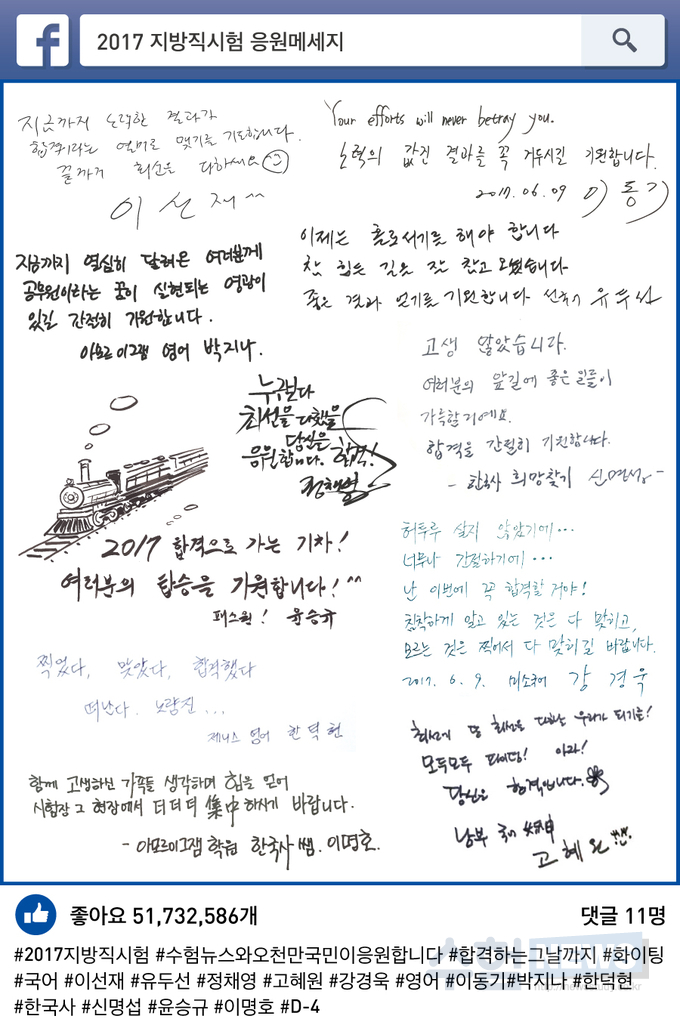 f
2017 지방직시험 응원메세지
지금까지 노력한 결과가
합격이라는 열매로 맺기를 기도합니다.
끝까지 최선을 다하세요
이선재^^
Your efforts will never betray you.
노력의 값진 결과를 꼭 거두시길 기원합니다.
2017.06.09 이동기
지금까지 열심히 달려온 여러분께
공무원이라는 꿈이 실현되는 영광이
있길 간절히 기원합니다.
아모르이그잼 영어 박지나.
이제는 홀로서기를 해야 합니다
참 힘든 길을 잘 참고 오셨습니다
좋은 결과 얻기를 기원합니다 유두선
고생 많았습니다.
여러분의 앞길에 좋은 일들이
가득할거예요.
합격을 간절히 기원합니다.
- 한국사 희망찾기 신명섭 -
누구보다
최선을 다했을
당신은
응원합니다. 합격!
정채영
2017 합격으로 가는 기차!
여러분의 탑승을 기원합니다! ^^
패스원! 윤승규
허투루 살지 않았기에...
너무나 간절하기에...
난 이번에 꼭 합격할거야!
침착하게 알고 있는 것은 다 맞히고,
모르는 것은 찍어서 다 맞히길 바랍니다.
2017. 6. 9. 미소국어 강경욱
찍었다, 맞았다, 합격했다
떠난다. 노량진...
제니스 영어 한덕현
함께 고생하신 가족들 생각하며 힘을 얻어
시험장 그 현장에서 더 더 더 集中 하시기 바랍니다.
- 아모르이그잼 학원 한국사 쌤. 이명호.
최선을 다하는 우리가 되기를!
모두모두 파이팅! 아자!
당신은 합격입니다.
남부 국어
고혜원
좋아요 51,732,586개
댓글 11명
#2017지방직시험 #수험뉴스와오천만국민이응원합니다 #합격하는그날까지 #화이팅
#국어 #이선재 #유두선 #정채영 #고혜원 #강경욱 #영어 #이동기#박지나 #한덕현
#한국사 #신명섭 #윤승규 #이명호 #D-4
수험NEWS